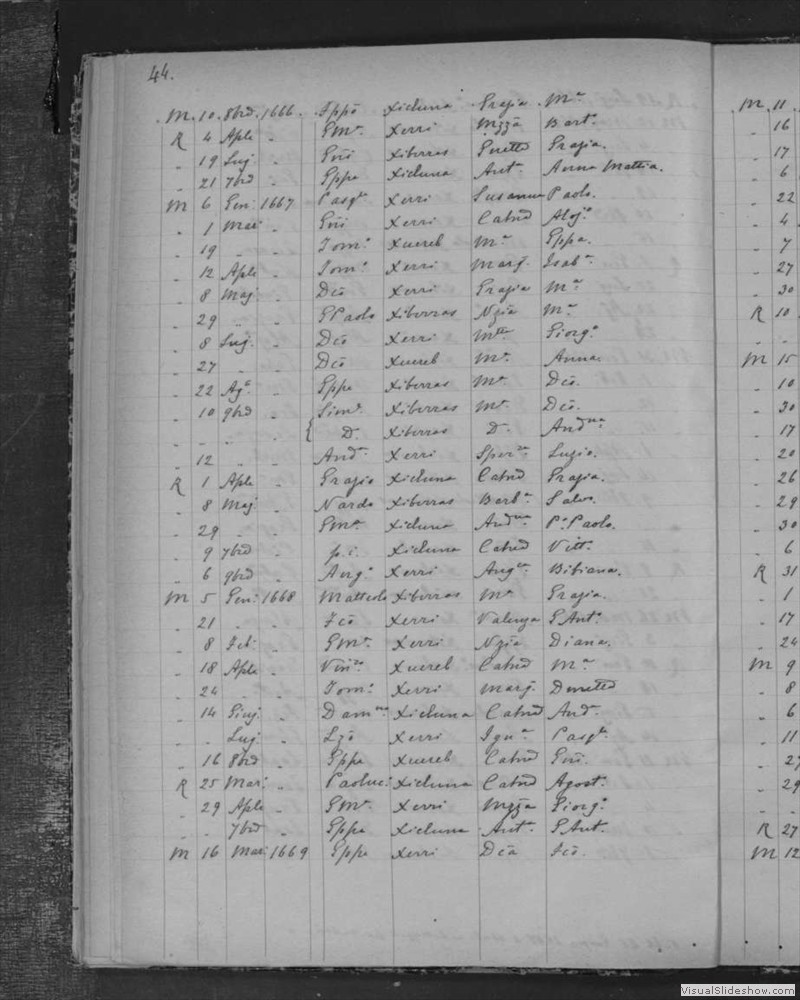 44.
M. 10. 8brd. 1666. Fppō Xicluna Grazia Mª
R 4 Aple " Gmª Xerri Mzza Bartº
" 19 Lug. " Giī Xiberras Grazia.
" 21 7brd " Gppe Xicluna Antª Anna Mattia.
M 6 Gen: 1667 Pasqle Xerri Susanna Paolo.
" 1 Mar: " Giī Xerri Catnd Alojº
" 19 " " Tomº Xuereb Mª Gppa.
" 12 Aple " Tomº Xerri Marg. Isabª
" 8 Mag. " Dcō Xerri Grazia Mª
" 29 " " GPaolo Xiberras Nzia Mª
" 8 Lug. " Dcō Xerri Giorgº
" 27 " " Dcō Xuereb Mª Anna.
" 22 Agº " Gppe Xiberras Mª Dcō.
" 10 9brd " Simº Xiberras Mª Dcō.
" " " " { D. Xiberras D. Andna
" 12 " " Andª Xerri Sperza Luzio.
R 1 Aple " Grazio Xicluna Catnd Grazia.
" 8 Mag. " Nardo Xiberras Barbª Salvo.
" 29 " " Gmª Xicluna Andna Pº Paolo.
" 9 7brd " Xicluna Catnd Vittª
" 6 9brd " Angº Xerri Angca Bibiana.
M 5 Gen: 1668 Matteolo Xiberras Mª Grazia.
" 21 " " Fcō Xerri Valenza GAntº
" 8 Feb: " Gmª Xerri Nzia Diana.
" 18 Aple " Vinzo Xuereb Catnd Mª
" 24 " " Tomº Xerri Marg. Demetto
" 14 Giug. " Xicluna Catnd Andª
" " Lug. " Lzō Xerri Ignª Pasqle
" 16 8brd " Gppe Xuereb Catnd Giī.
R 25 Mar: " Paoluc: Xicluna Catnd Agostº
" 29 Aple " Gmª Xerri Mzza Giorgº
" " 7brd " Gppe Xicluna Antª GAntº
M 16 Mar: 1669 Gppe Xerri Dcā Fcō.
M 11
" 16
" 17
" 6
" 22
" 4
" 7
" 27
" 30
R 10
" "
M 15
" 10
" 30
" 17
" 20
" 26
" 29
" 30
" 6
R 31
" 1
" 17
" 24
M 9
" 8
" 6
" 11
" 27
" 29
" "
R 27
M 12
VisualSlideshow.com